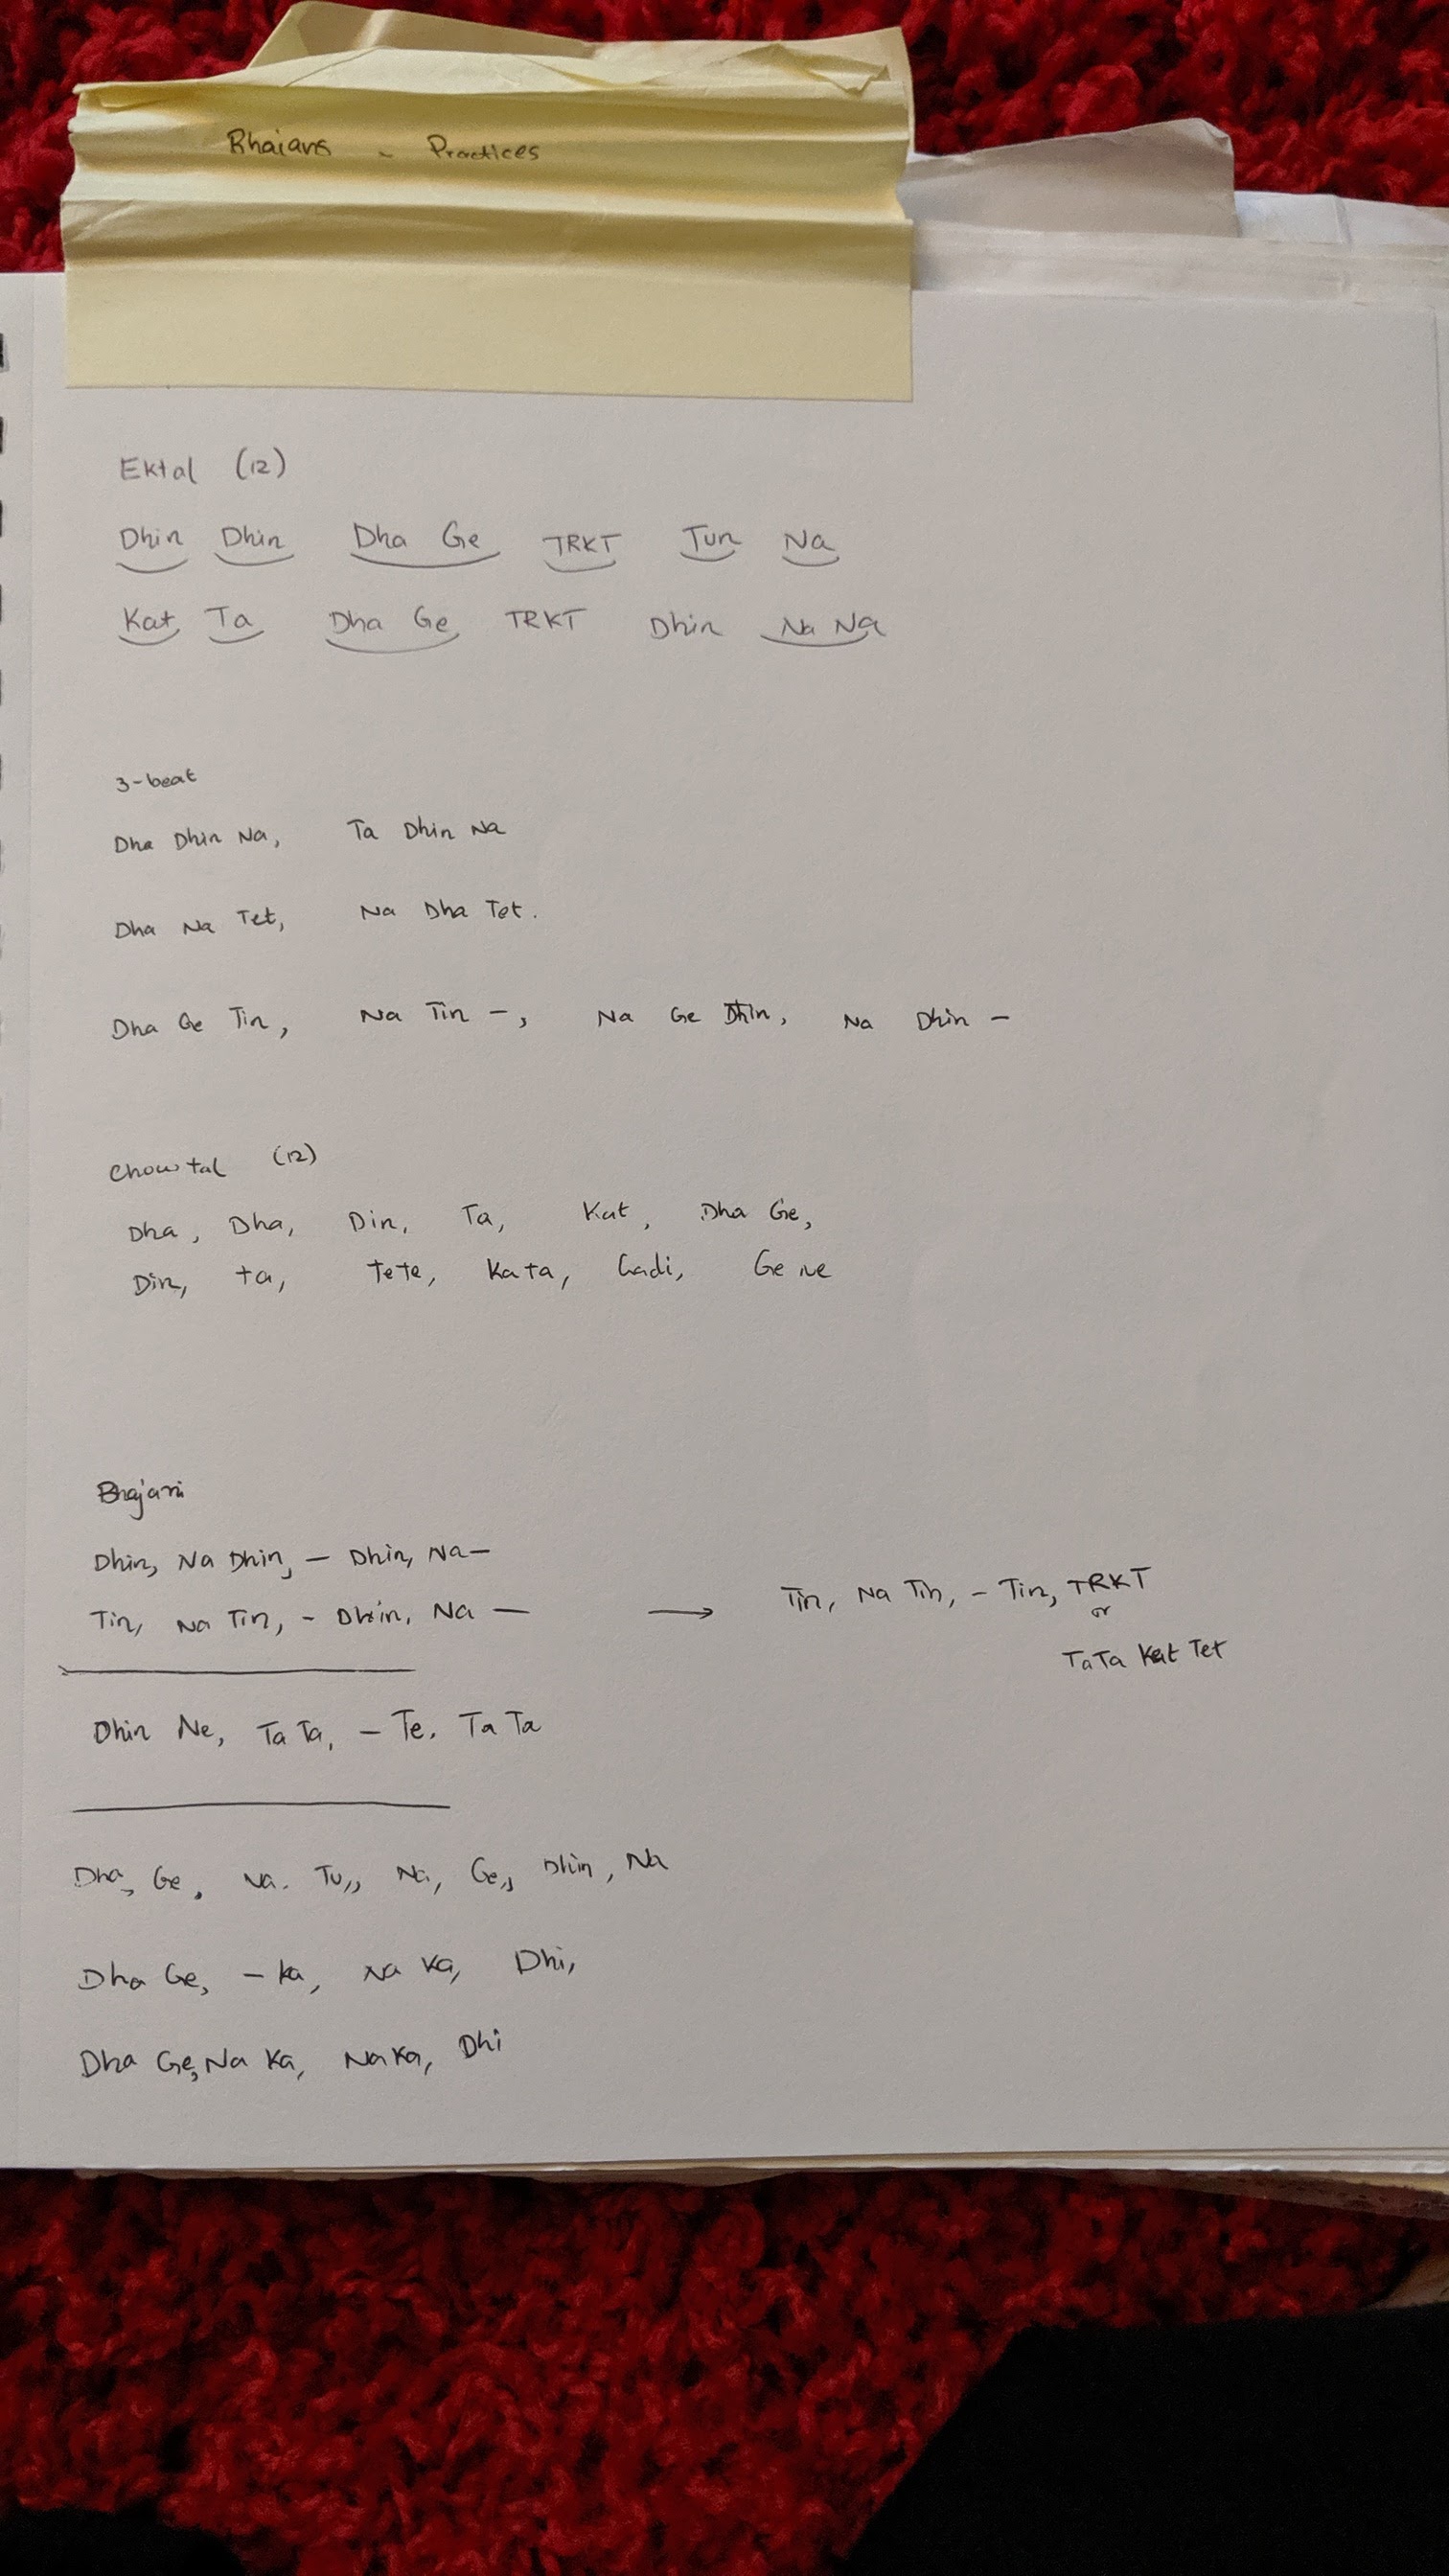 Bhajans - Practices
Ektal (12)
Dhin Dhin Dha Ge TRKT Tun Na
Kat Ta Dha Ge TRKT Dhin Na Na
3-beat
Dha Dhin Na, Ta Dhin Na
Dha Na Tet, Na Dha Tet.
Dha Ge Tin, Na Tin –, Na Ge Dhin, Na Dhin –
Chowtal (12)
Dha, Dha, Din, Ta, Kat, Dha Ge,
Din, ta, TeTe, Kata, Gadi, Ge ne
Bhajani
Dhin, Na Dhin, – Dhin, Na –
Tin, Na Tin, - Dhin, Na – → Tin, Na Tin, - Tin, TRKT
or
TaTa Kat Tet
Dhin Ne, Ta Ta, – Te. Ta Ta
Dha, Ge, Na. Tu,, Na, Ge,, Dhin, Na
Dha Ge, – ka, Na Ka, Dhi,
Dha Ge, Na Ka, Na Ka, Dhi